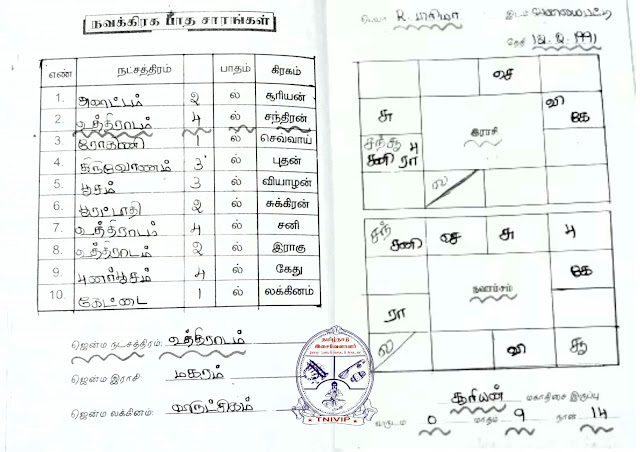 நவக்கிரக பாத சாரங்கள்
எண் நட்சத்திரம் பாதம் கிரகம்
1. அவிட்டம் 2 ல் சூரியன்
2. உத்திராடம் 4 ல் சந்திரன்
3. ரோகணி 1 ல் செவ்வாய்
4. திருவோணம் 3 ல் புதன்
5. பூசம் 3 ல் வியாழன்
6. பூரட்டாதி 2 ல் சுக்கிரன்
7. உத்திராடம் 4 ல் சனி
8. உத்திராடம் 2 ல் இராகு
9. புனர்பூசம் 4 ல் கேது
10. கேட்டை 1 ல் லக்கினம்
ஜென்ம நட்சத்திரம்: உத்திராடம்
ஜென்ம இராசி: மகரம்
ஜென்ம லக்கினம்:
தமிழ்நாடு
இசைவேளாளர்
TNIVIP
பெயர் R. இடம்
தேதி 1991
சை
சு
வி
கே
சந் சூ பு
சனி ரா
இராசி
ல
சந்
சனி
சை
சு
பு
கே
நவாம்சம்
ரா
ல
வி
சூ
சூரியன் மகாதிசை இருப்பு
வருடம் 0 மாதம் 9 நாள் 14